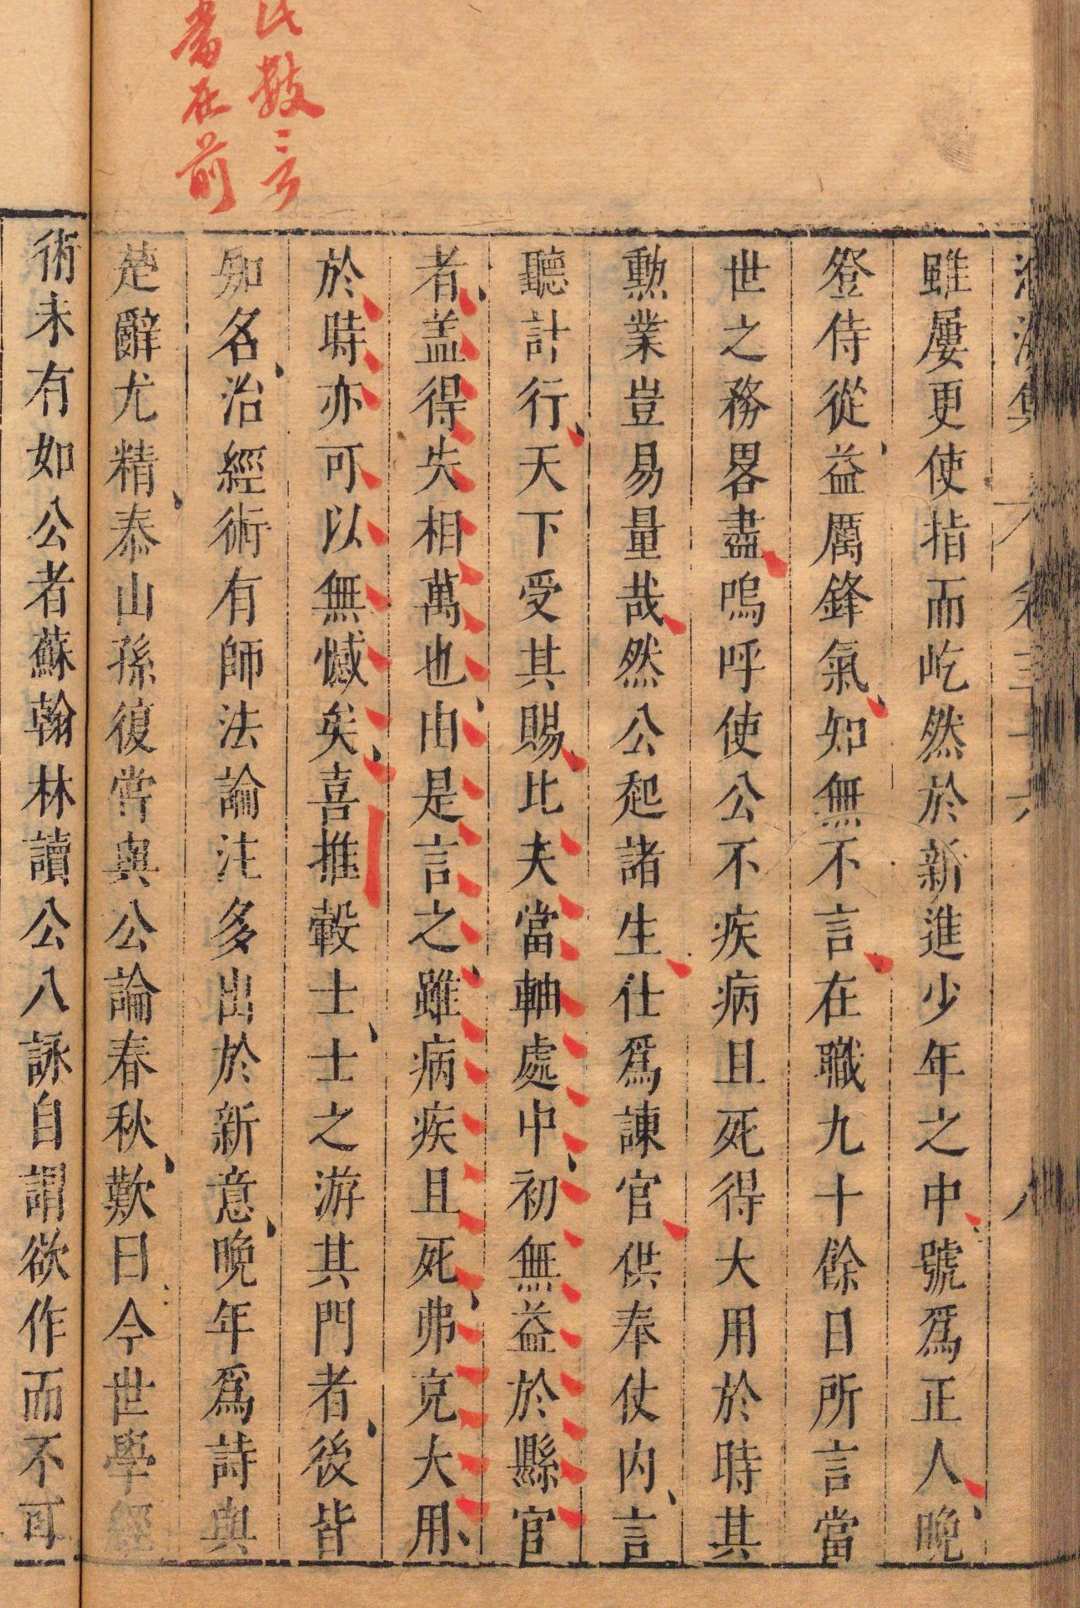 數言
當在前
淮海集 卷三十六 八
雖屢更使指而屹然於新進少年之中號爲正人晚
登侍從益厲鋒氣知無不言在職九十餘日所言當
世之務畧盡嗚呼使公不疾病且死得大用於時其
勲業豈易量哉然公起諸生仕爲諫官供奉仗内言
聽計行天下受其賜比夫當軸處中初無益於縣官
者盖得失相萬也由是言之雖病疾且死弗克大用
於時亦可以無憾矣喜推轂士士之游其門者後皆
知名治經術有師法論注多出於新意晚年爲詩與
楚辭尤精泰山孫復嘗與公論春秋歎曰今世學經
術未有如公者蘇翰林讀公八詠自謂欲作而不可